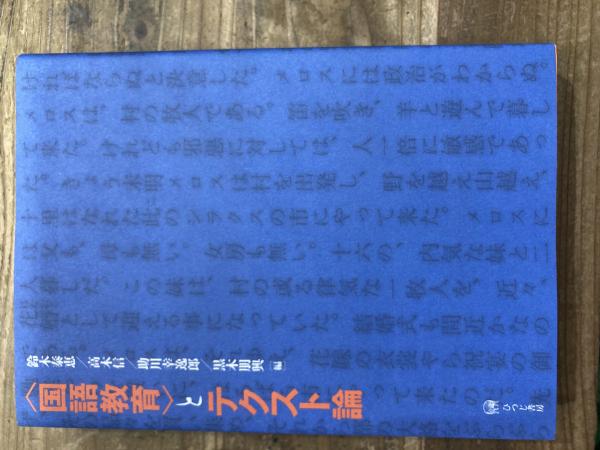 ければならぬと決意した。メロスには政治がわからぬ。
メロスは、村の牧人である。笛を吹き、羊と遊んで暮し
て来た。けれども邪悪に対しては、人一倍に敏感であっ
た。きょう未明メロスは村を出発し、野を越え山越え、
十里はなれた此のシラクスの市にやって来た。メロスに
は父も、母も無い。女房も無い。十六の、内気な妹と二
人暮しだ。この妹は、村の或る律気な一牧人を、近々、
花婿として迎える事になっていた。結婚式も間近かなの
花嫁の衣裳やら祝宴の御
って来たのだ。先
鈴木泰恵/高木信/助川幸逸郎/黒木朋興 編
〈国語教育〉とテクスト論
ひつじ書房